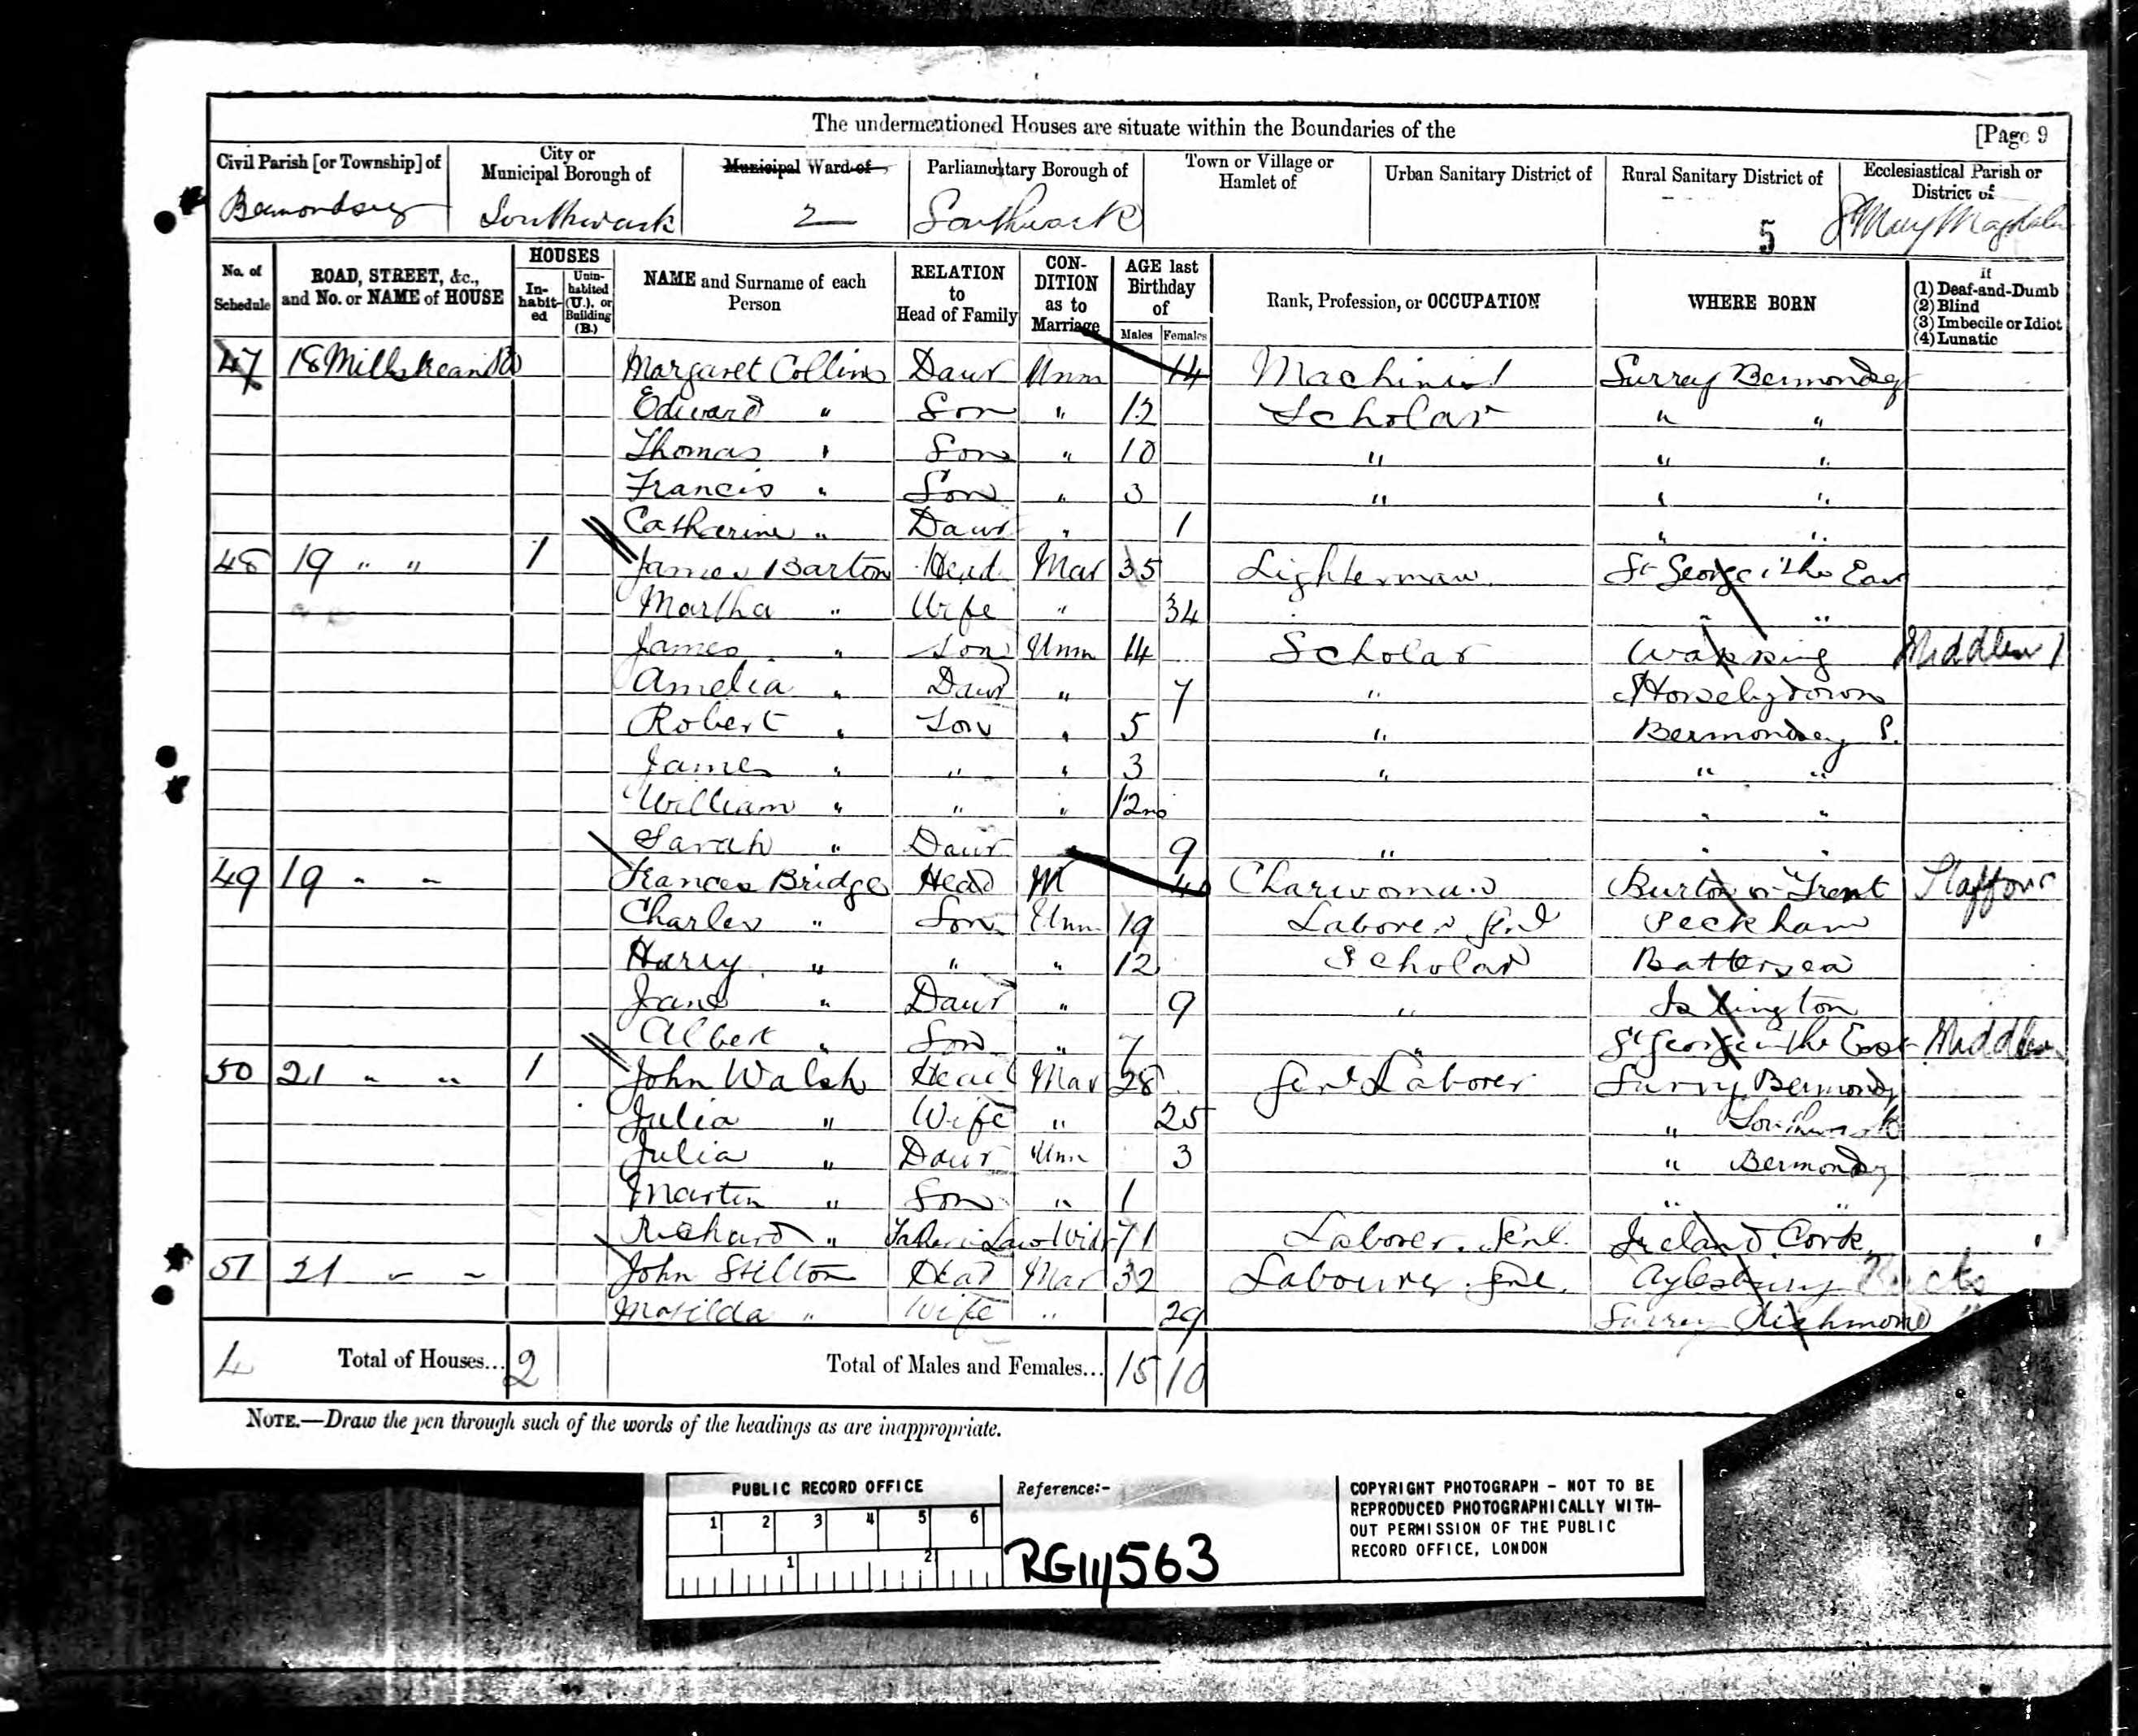 The undermentioned Houses are situate within the Boundaries of the [Page 9
Civil Parish [or Township] of Bermondsey
City or Municipal Borough of Southwark
Municipal Ward of 2
Parliamentary Borough of Southwark
Town or Village or Hamlet of
Urban Sanitary District of
Rural Sanitary District of 5
Ecclesiastical Parish or District of St Mary Magdalen
No. of Schedule
ROAD, STREET, &c., and No. or NAME of HOUSE
HOUSES In-habit-ed Unin-habited (U.), or Building (B.)
NAME and Surname of each Person
RELATION to Head of Family
CON-DITION as to Marriage
AGE last Birthday of Males Females
Rank, Profession, or OCCUPATION
WHERE BORN
If (1) Deaf-and-Dumb (2) Blind (3) Imbecile or Idiot (4) Lunatic
47 18 Millstream Rd Margaret Collins Daur Unm 14 Machinist Surrey Bermondsey
Edward " Son " 12 Scholar " "
Thomas " Son " 10 " " "
Francis " Son " 3 " " "
Catharine " Daur " 1 " "
48 19 " " 1 James Barton Head Mar 35 Lighterman St George i the East
Martha " Wife " 34 " "
James " Son Unm 14 Scholar Wapping Middlesex
Amelia " Daur " 7 " Horselydown
Robert " Son " 5 " Bermondsey S.
James " " " 3 " " "
William " " " 12mo " "
Sarah " Daur 9 " " "
49 19 " " Frances Bridge Head M 40 Charwoman Burton on Trent Stafford
Charles " Son Unm 19 Laborer Genl Peckham
Harry " " " 12 Scholar Battersea
Jane " Daur " 9 " Islington
Albert " Son " 7 " St George in the East Middlesex
50 21 " " 1 John Walsh Head Mar 28 Genl Laborer Surry Bermondsy
Julia " Wife " 25 " Southwark
Julia " Daur Unm 3 " Bermondsy
Martin " Son " 1 " "
Richard " Father in Law Widr 71 Laborer Genl. Ireland Cork
51 21 " " John Stilton Head Mar 32 Labourer Genl. Aylesbury Bucks
Matilda " Wife " 29 Surrey Richmond "
4 Total of Houses... 2 Total of Males and Females... 15 10
NOTE.—Draw the pen through such of the words of the headings as are inappropriate.
PUBLIC RECORD OFFICE
1 2 3 4 5 6
1 2
Reference:-
RG11/563
COPYRIGHT PHOTOGRAPH - NOT TO BE
REPRODUCED PHOTOGRAPHICALLY WITH-
OUT PERMISSION OF THE PUBLIC
RECORD OFFICE, LONDON